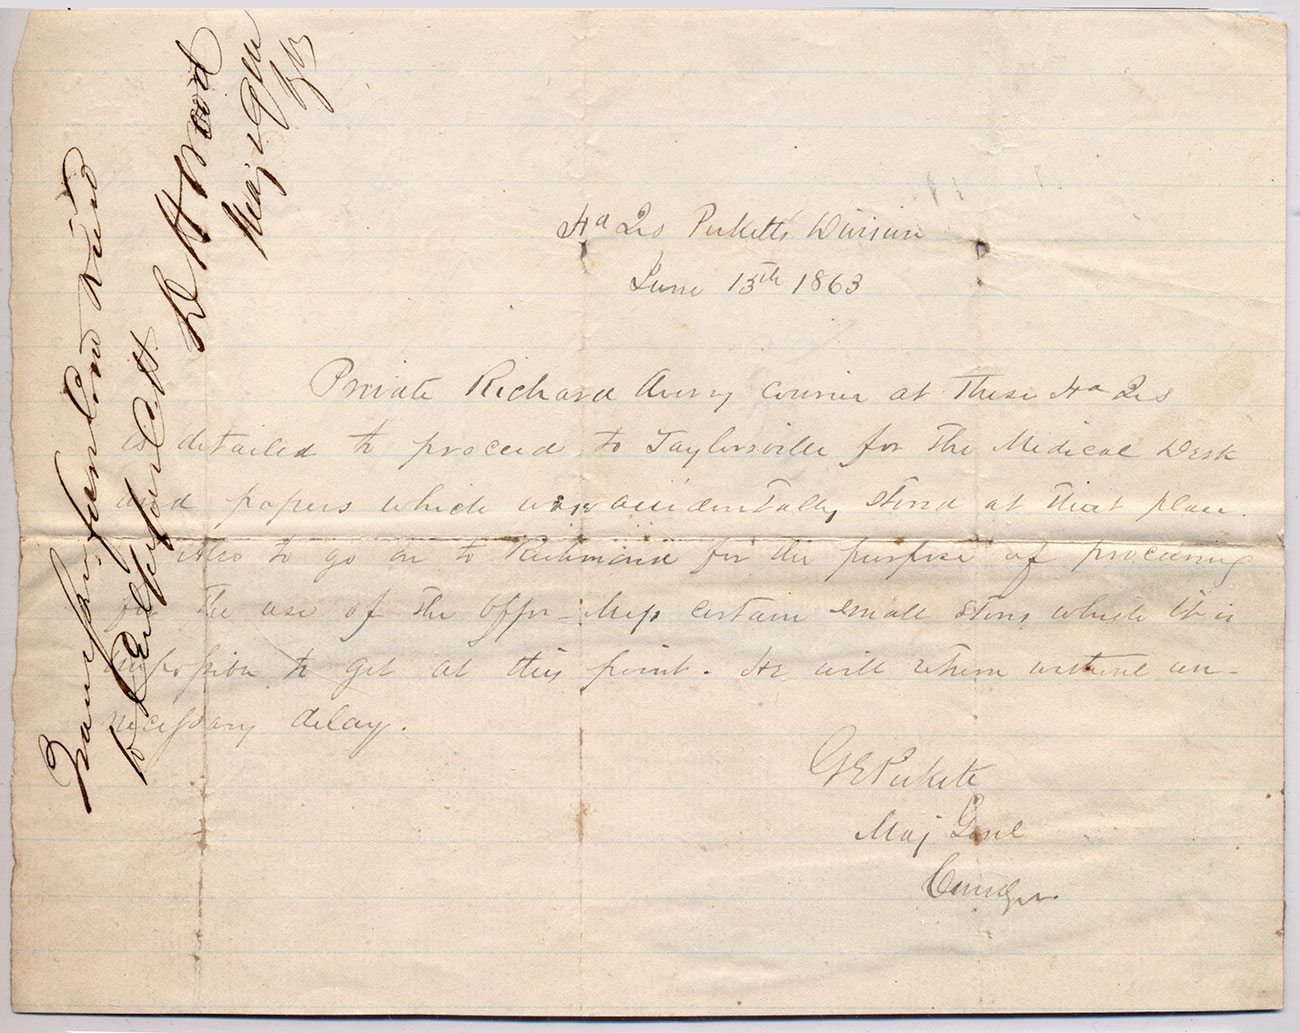 Hd Qrs Picketts Division
June 13th 1863
Private Richard Avery courier at these Hd Qrs
is detailed to proceed to Taylorsville for the Medical Desk
and papers which was accidentally stored at that place.
Also to go on to Richmond for the purpose of procuring
for the use of the Offrs Mess certain small stores which it is
impossible to get at this point. He will return without un-
necessary delay.
GE Pickett
Maj Genl
Comdg
Transp. furlow
to
Wood
Maj & QM